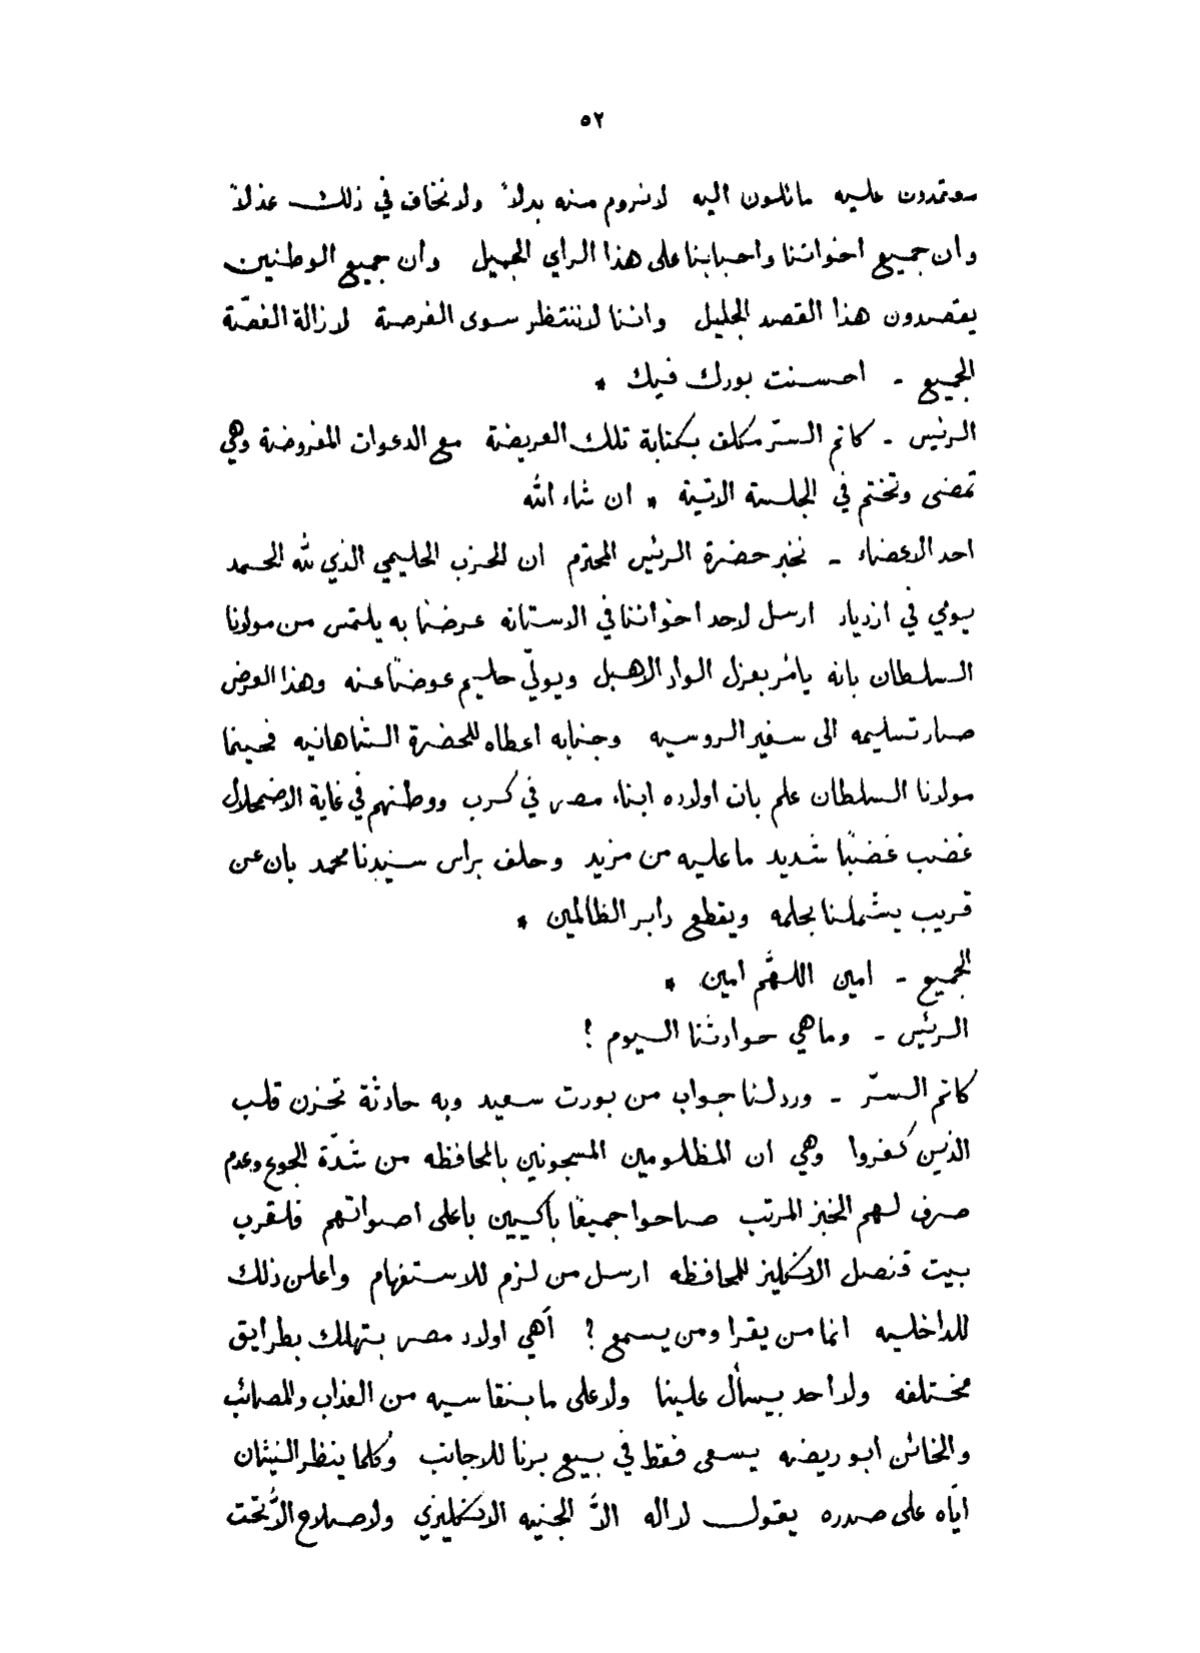 ٥٢
معتمدون عليه مائلون اليه لا نروم منه بدلاً ولا نخاف في ذلك عذلاً
وان جميع اخواتنا واحبابنا على هذا الراي الجميل وان جميع الوطنين
يقصدون هذا القصد الجليل واننا لا ننتظر سوى الفرصة لازالة الغصّة
الجميع - احسنت بورك فيك *
الرئيس - كاتم السرّ مكلف بكتابة تلك العريضة مع الدعوات المفروضة وهي
تمضى وتختم في الجلسة الاتية * ان شاء الله
احد الاعضاء - نخبر حضرة الرئيس المحترم ان للحزب الحليمي الذي لله الحمد
يومي في ازدياد ارسل لاحد اخواننا في الاستانه عرضا به يلتمس من مولانا
السلطان بانه يأمر بعزل الواد الاهبل ويولّي حليم عوضاً عنه وهذا العرض
صار تسليمه الى سفير الروسيه وجنابه اعطاه للحضرة الشاهانيه فحينما
مولانا السلطان علم بان اولاده ابناء مصر في كرب ووطنهم في غاية الاضمحلال
غضب غضبًا شديد ما عليه من مزيد وحلف براس سيدنا محمد بان عن
قريب يشملنا بحلمه ويقطع دابر الظالمين *
الجميع - امين اللهُّم امين *
الرئيس - وما هي حوادثنا اليوم ؟
كاتم السرّ - ورد لنا جواب من بورت سعيد وبه حادثة تحزن قلب
الذين كفروا وهي ان المظلومين المسجونين بالمحافظه من شدّة الجوع وعدم
صرف لهم الخبز المرتب صاحوا جميعًا باكيين باعلى اصواتهم فلقرب
بيت قنصل الانكليز للمحافظه ارسل من لزم للاستفهام واعلن ذلك
للداخليه انما من يقرا ومن يسمع ؟ أهي اولاد مصر بتهلك بطرايق
مختلفه ولا أحد بيسأل علينا ولا على ما بنقاسيه من العذاب والمصائب
والخائن ابو ريضه يسعى فقط في بيع برنا للاجانب وكلما ينظر النيشان
ايّاه على صدره يقول لا اله الاَّ الجنيه الانكليزي ولا صلاح الاَّ تحت